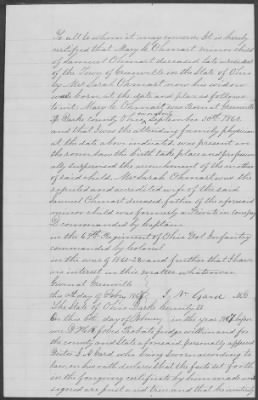 To all whom it may concern. It is hereby
certified that Mary C. Ohmart minor child
of Samuel Ohmart deceased late resident
of the Town of Greenville in the State of Ohio
by Mrs Sarah Ohmart now his widow
was born at the date and place as follows
to wit. Mary C. Ohmart was Born at Greenville
Darke County Ohio September 30th 186
and that I was the attending family physician
at the date above indicated, was present in
the room saw the birth take place and fre
ually expressed the announcement of the mother
of said child. Mrs Sarah Ohmart was the
reputed and accredited wife of the said
Samuel Ohmart deceased father of the aforesaid
minor child was formerly a Private in Company
D commanded by Captain
in the 69th Regiment of Ohio Vol Infantry
commanded by Colonel
in the war of 1861 and further that I have
no interest in this matter whatsoever
Greenville
this day of 186 J. W. Gard M.D.
The State of Ohio Darke County SS
On this 6th day of in the year 186 before
me Probate Judge within and for
the county and State aforesaid personally appeared
Gard who being sworn according to
law, on his oath declares that the facts set forth
in the foregoing certificate by him made and
signed are just and true and that he